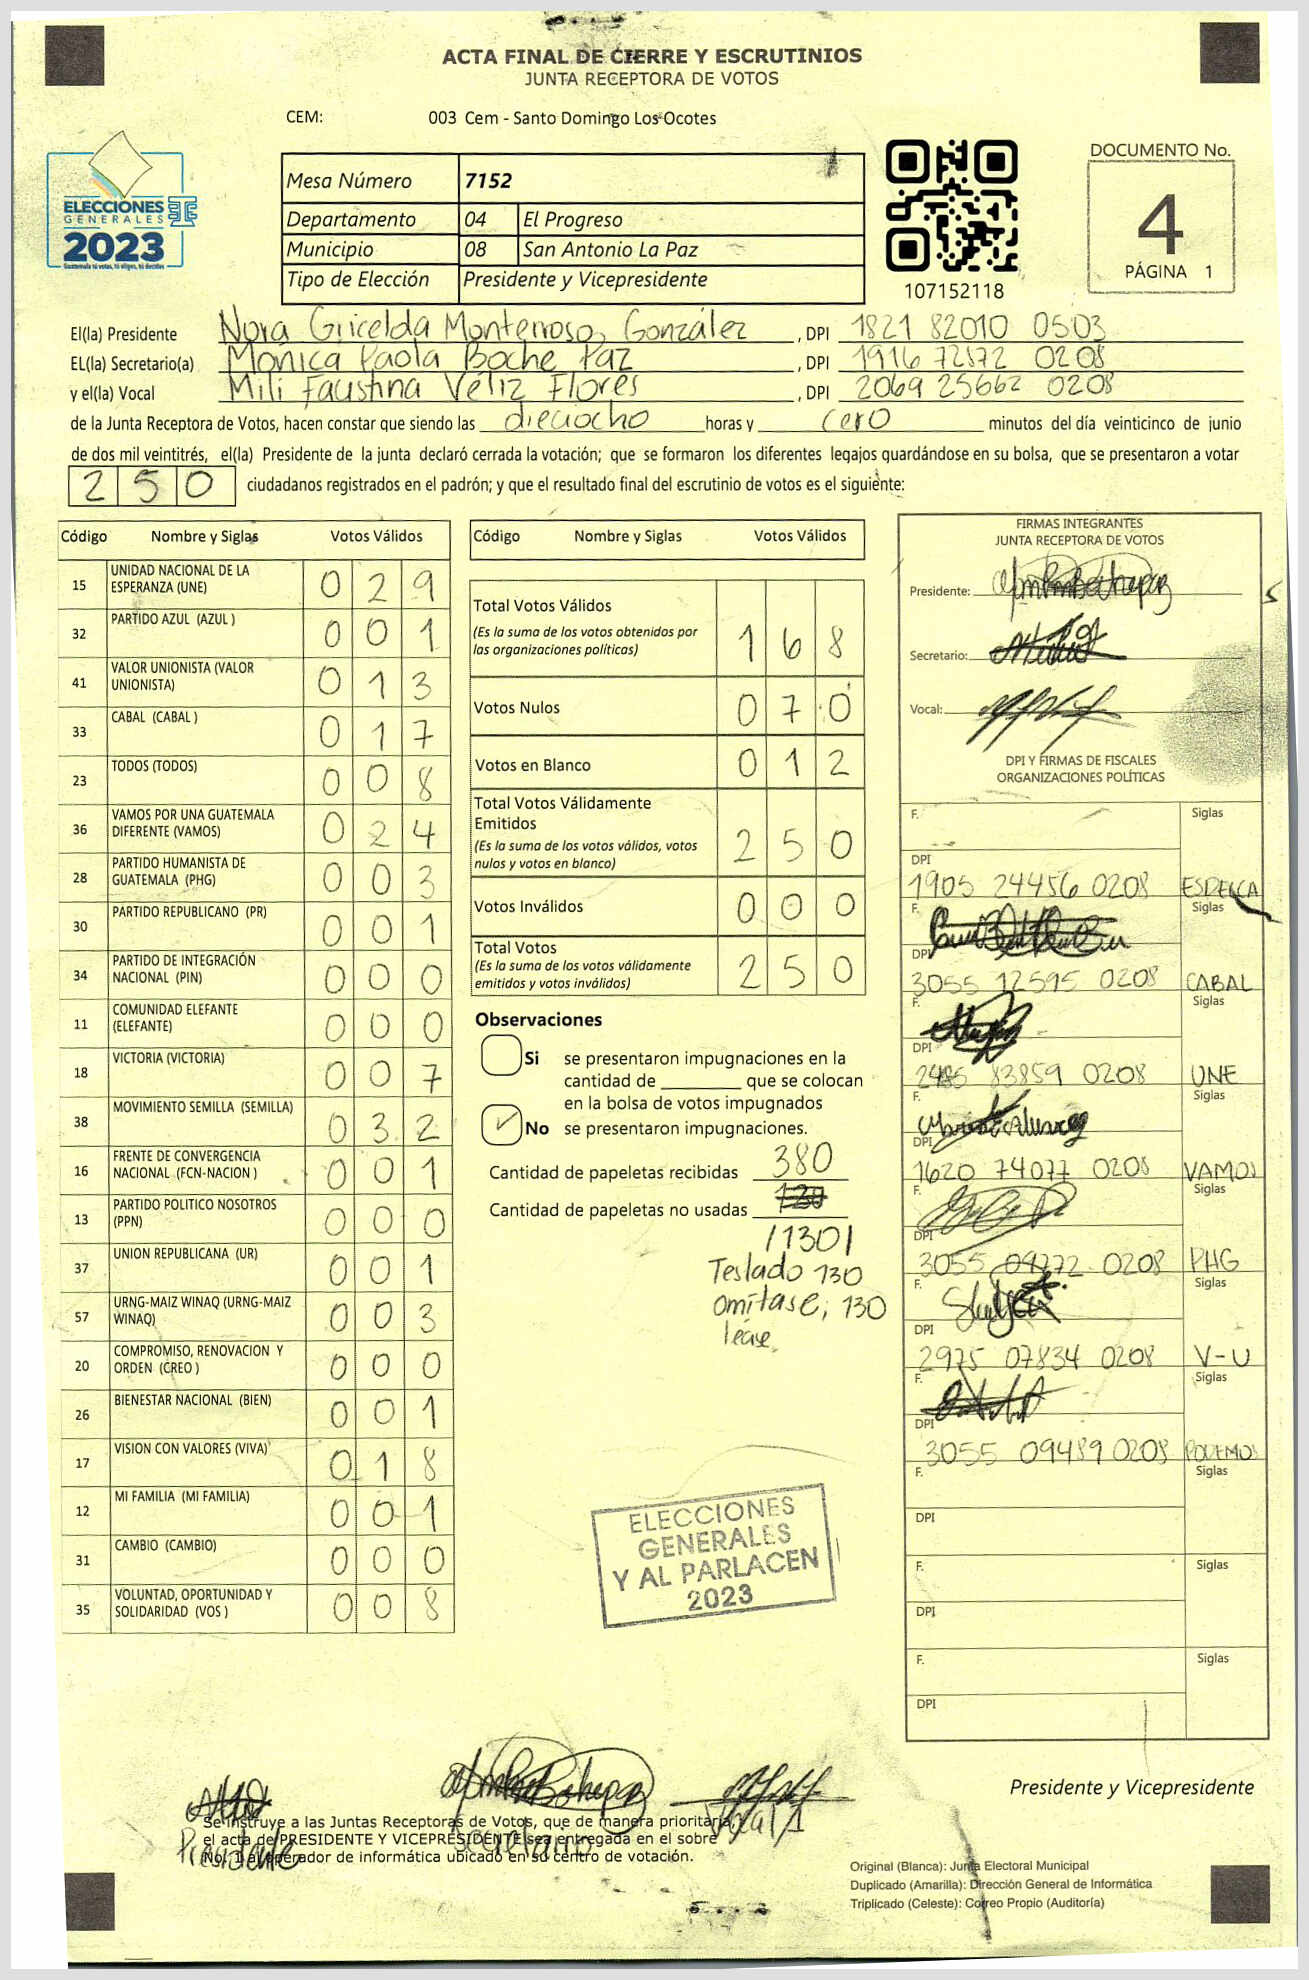 ACTA FINAL DE CIERRE Y ESCRUTINIOS
JUNTA RECEPTORA DE VOTOS
CEM: 003 Cem - Santo Domingo Los Ocotes
ELECCIONES
GENERALES
2023
Guatemala tú votas, tú eliges, tú decides
Mesa Número 7152
Departamento 04 El Progreso
Municipio 08 San Antonio La Paz
Tipo de Elección Presidente y Vicepresidente
107152118
DOCUMENTO No.
4
PÁGINA 1
El(la) Presidente Nora Gricelda Monterroso González , DPI 1821 82010 0503
EL(la) Secretario(a) Mónica Paola Boche Paz , DPI 1916 72872 0208
y el(la) Vocal Mili Faustina Véliz Flores , DPI 2069 25662 0208
de la Junta Receptora de Votos, hacen constar que siendo las dieciocho horas y cero minutos del día veinticinco de junio
de dos mil veintitrés, el(la) Presidente de la junta declaró cerrada la votación; que se formaron los diferentes legajos guardándose en su bolsa, que se presentaron a votar
250 ciudadanos registrados en el padrón; y que el resultado final del escrutinio de votos es el siguiente:
Código Nombre y Siglas Votos Válidos
15 UNIDAD NACIONAL DE LA ESPERANZA (UNE) 0 2 9
32 PARTIDO AZUL (AZUL ) 0 0 1
41 VALOR UNIONISTA (VALOR UNIONISTA) 0 1 3
33 CABAL (CABAL ) 0 1 7
23 TODOS (TODOS) 0 0 8
36 VAMOS POR UNA GUATEMALA DIFERENTE (VAMOS) 0 2 4
28 PARTIDO HUMANISTA DE GUATEMALA (PHG) 0 0 3
30 PARTIDO REPUBLICANO (PR) 0 0 1
34 PARTIDO DE INTEGRACIÓN NACIONAL (PIN) 0 0 0
11 COMUNIDAD ELEFANTE (ELEFANTE) 0 0 0
18 VICTORIA (VICTORIA) 0 0 7
38 MOVIMIENTO SEMILLA (SEMILLA) 0 3 2
16 FRENTE DE CONVERGENCIA NACIONAL (FCN-NACION ) 0 0 1
13 PARTIDO POLITICO NOSOTROS (PPN) 0 0 0
37 UNION REPUBLICANA (UR) 0 0 1
57 URNG-MAIZ WINAQ (URNG-MAIZ WINAQ) 0 0 3
20 COMPROMISO, RENOVACION Y ORDEN (CREO ) 0 0 0
26 BIENESTAR NACIONAL (BIEN) 0 0 1
17 VISION CON VALORES (VIVA) 0 1 8
12 MI FAMILIA (MI FAMILIA) 0 0 1
31 CAMBIO (CAMBIO) 0 0 0
35 VOLUNTAD, OPORTUNIDAD Y SOLIDARIDAD (VOS ) 0 0 8
Código Nombre y Siglas Votos Válidos
Total Votos Válidos 1 6 8
(Es la suma de los votos obtenidos por
las organizaciones políticas)
Votos Nulos 0 7 0
Votos en Blanco 0 1 2
Total Votos Válidamente
Emitidos 2 5 0
(Es la suma de los votos válidos, votos
nulos y votos en blanco)
Votos Inválidos 0 0 0
Total Votos 2 5 0
(Es la suma de los votos válidamente
emitidos y votos inválidos)
Observaciones
Si se presentaron impugnaciones en la
cantidad de ________ que se colocan
en la bolsa de votos impugnados
No se presentaron impugnaciones.
Cantidad de papeletas recibidas 380
Cantidad de papeletas no usadas 130
/130/
Teslado 130
omítase, 130
léase
ELECCIONES
GENERALES
Y AL PARLACEN
2023
FIRMAS INTEGRANTES
JUNTA RECEPTORA DE VOTOS
Presidente:
Secretario:
Vocal:
DPI Y FIRMAS DE FISCALES
ORGANIZACIONES POLÍTICAS
F. Siglas
DPI
1905 24456 0208
F. Siglas
DPI
3055 12595 0208 CABAL
F. Siglas
DPI
83859 0208 UNE
F. Siglas
DPI
1620 74077 0208 VAMOS
F. Siglas
DPI
3055 09772 0208 PHG
F. Siglas
DPI
2975 07834 0208 V-U
F. Siglas
DPI
3055 09489 0208 PODEMOS
F. Siglas
DPI
F. Siglas
DPI
F. Siglas
DPI
Presidente Secretario Vocal 1
Se instruye a las Juntas Receptoras de Votos, que de manera prioritaria
el acta de PRESIDENTE Y VICEPRESIDENTE sea entregada en el sobre
No. 1 al operador de informática ubicado en su centro de votación.
Presidente y Vicepresidente
Original (Blanca): Junta Electoral Municipal
Duplicado (Amarilla): Dirección General de Informática
Triplicado (Celeste): Correo Propio (Auditoría)